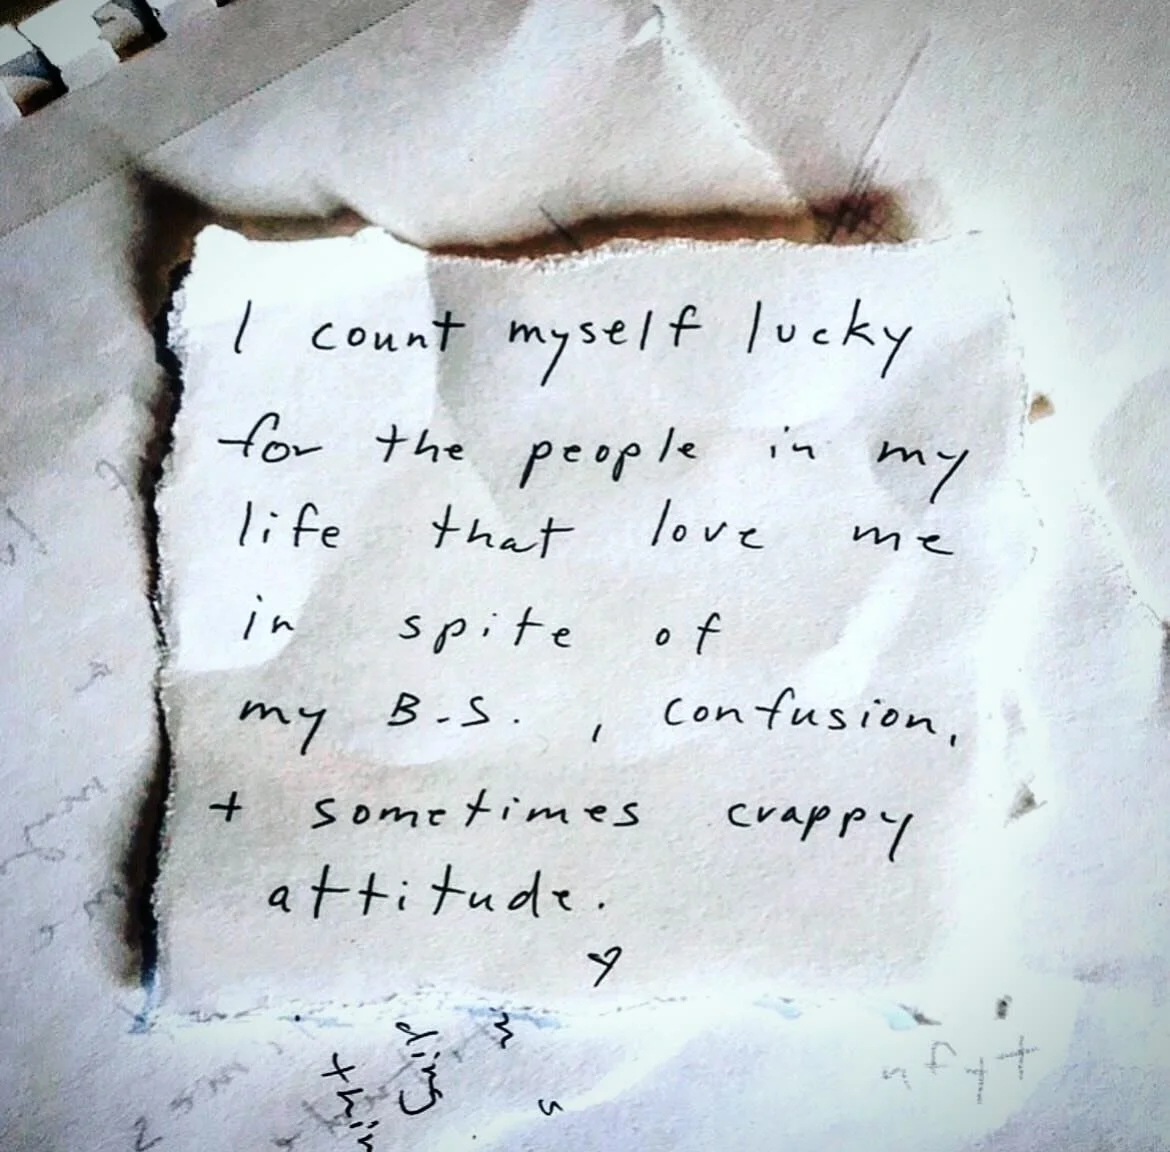 I count myself lucky
for the people in my
life that love me
in spite of
my B.S. , confusion,
+ sometimes crappy
attitude.